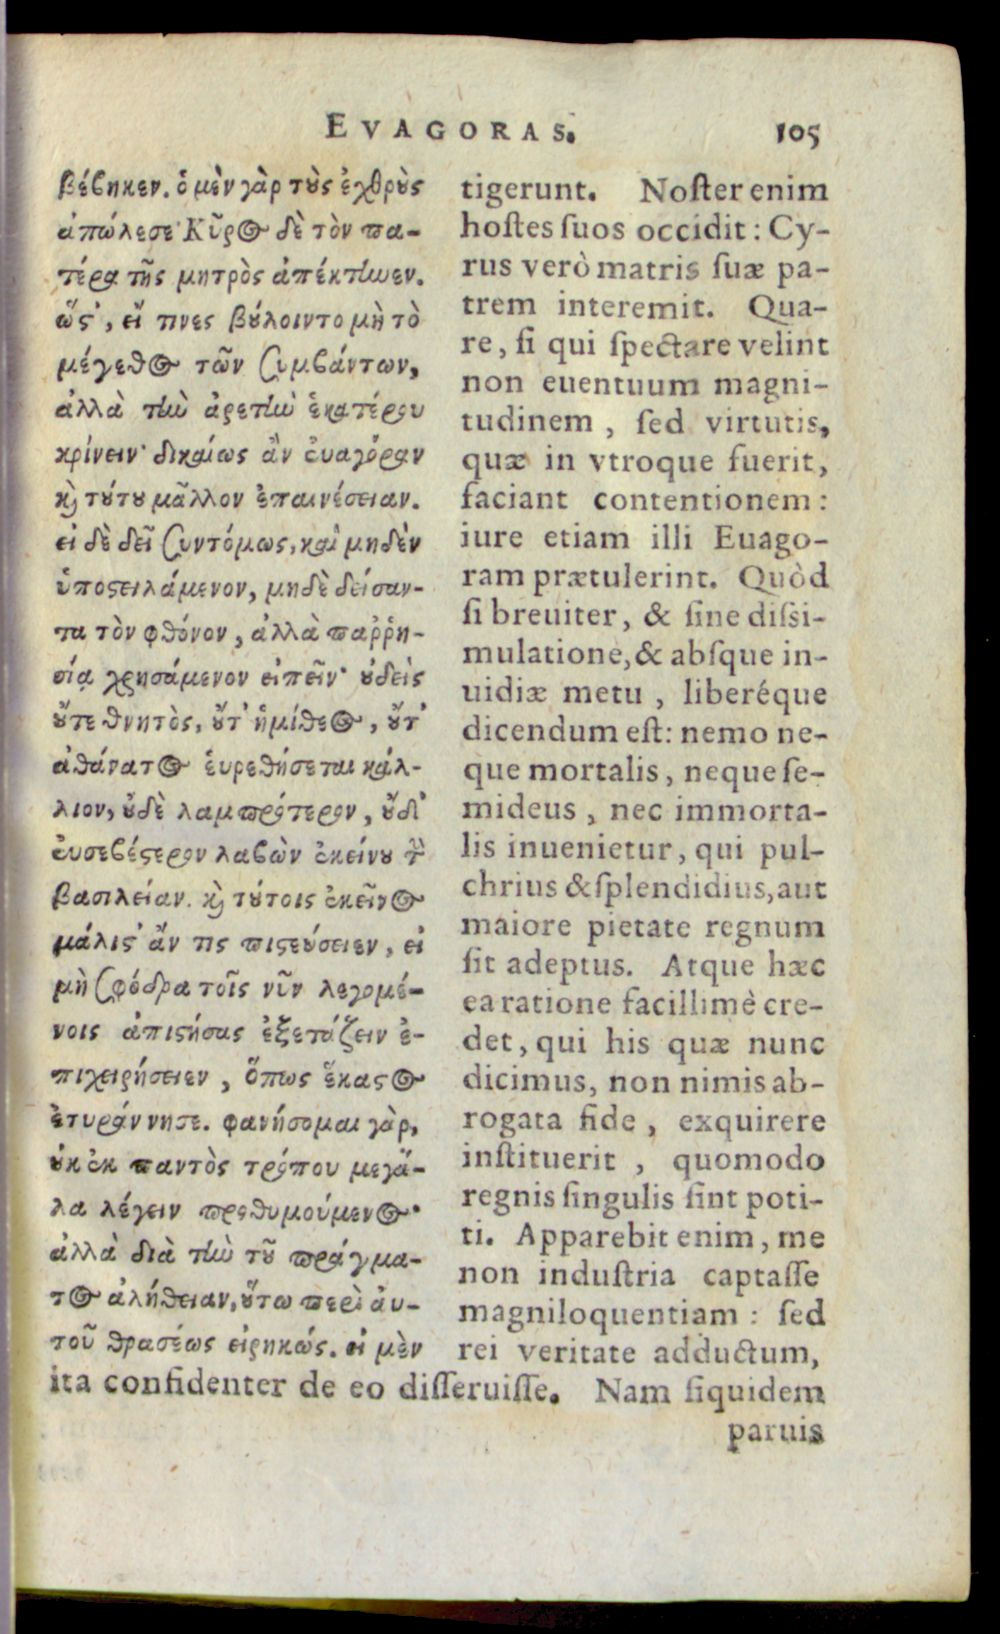 EVAGORAS. 105
βέβηκεν. ὁ μὲν γὰρ τοὺς ἐχθροὺς
ἀπώλεσε· Κῦρος δὲ τὸν πα-
τέρα τῆς μητρὸς ἀπέκτεινεν.
ὥστ', εἴ τινες βούλοιντο μὴ τὸ
μέγεθος τῶν συμβάντων,
ἀλλὰ τὴν ἀρετὴν ἑκατέρου
κρίνειν· δικαίως ἂν εὐαγόραν
καὶ τούτου μᾶλλον ἐπαινέσειαν.
εἰ δὲ δεῖ συντόμως, καὶ μηδὲν
ὑποστειλάμενον, μηδὲ δείσαν-
τα τὸν φθόνον, ἀλλὰ παῤῥη-
σίᾳ χρησάμενον εἰπεῖν· οὐδεὶς
οὔτε θνητὸς, οὔτ' ἡμίθεος, οὔτ'
ἀθάνατος εὑρεθήσεται κάλ-
λιον, οὐδὲ λαμπρότερον, οὔδ'
εὐσεβέστερον λαβὼν ἐκείνου τὴν
βασιλείαν. καὶ τούτοις ἐκεῖνος
μάλιστ' ἄν τις πιστεύσειεν, εἰ
μὴ σφόδρα τοῖς νῦν λεγομέ-
νοις ἀπιστήσας ἐξετάζειν ἐ-
πιχειρήσειεν, ὅπως ἕκαστος
ἐτυράννησε. φανήσομαι γὰρ,
οὐκ ἐκ παντὸς τρόπου μεγά-
λα λέγειν προθυμούμενος·
ἀλλὰ διὰ τὴν τοῦ πράγμα-
τος ἀλήθειαν, οὕτω περὶ αὐ-
τοῦ θρασέως εἰρηκώς. εἰ μὲν
tigerunt. Noſter enim
hoſtes ſuos occidit: Cy-
rus verò matris ſuæ pa-
trem interemit. Qua-
re, ſi qui ſpectare velint
non euentuum magni-
tudinem, ſed virtutis,
quæ in vtroque fuerit,
faciant contentionem:
iure etiam illi Euago-
ram prætulerint. Quòd
ſi breuiter, & ſine diſsi-
mulatione, & abſque in-
uidiæ metu, liberéque
dicendum eſt: nemo ne-
que mortalis, neque ſe-
mideus, nec immorta-
lis inuenietur, qui pul-
chrius & ſplendidius, aut
maiore pietate regnum
ſit adeptus. Atque hæc
ea ratione facillimè cre-
det, qui his quæ nunc
dicimus, non nimis ab-
rogata fide, exquirere
inſtituerit, quomodo
regnis ſingulis ſint poti-
ti. Apparebit enim, me
non induſtria captaſſe
magniloquentiam: ſed
rei veritate adductum,
ita confidenter de eo diſſeruiſſe. Nam ſiquidem
paruis